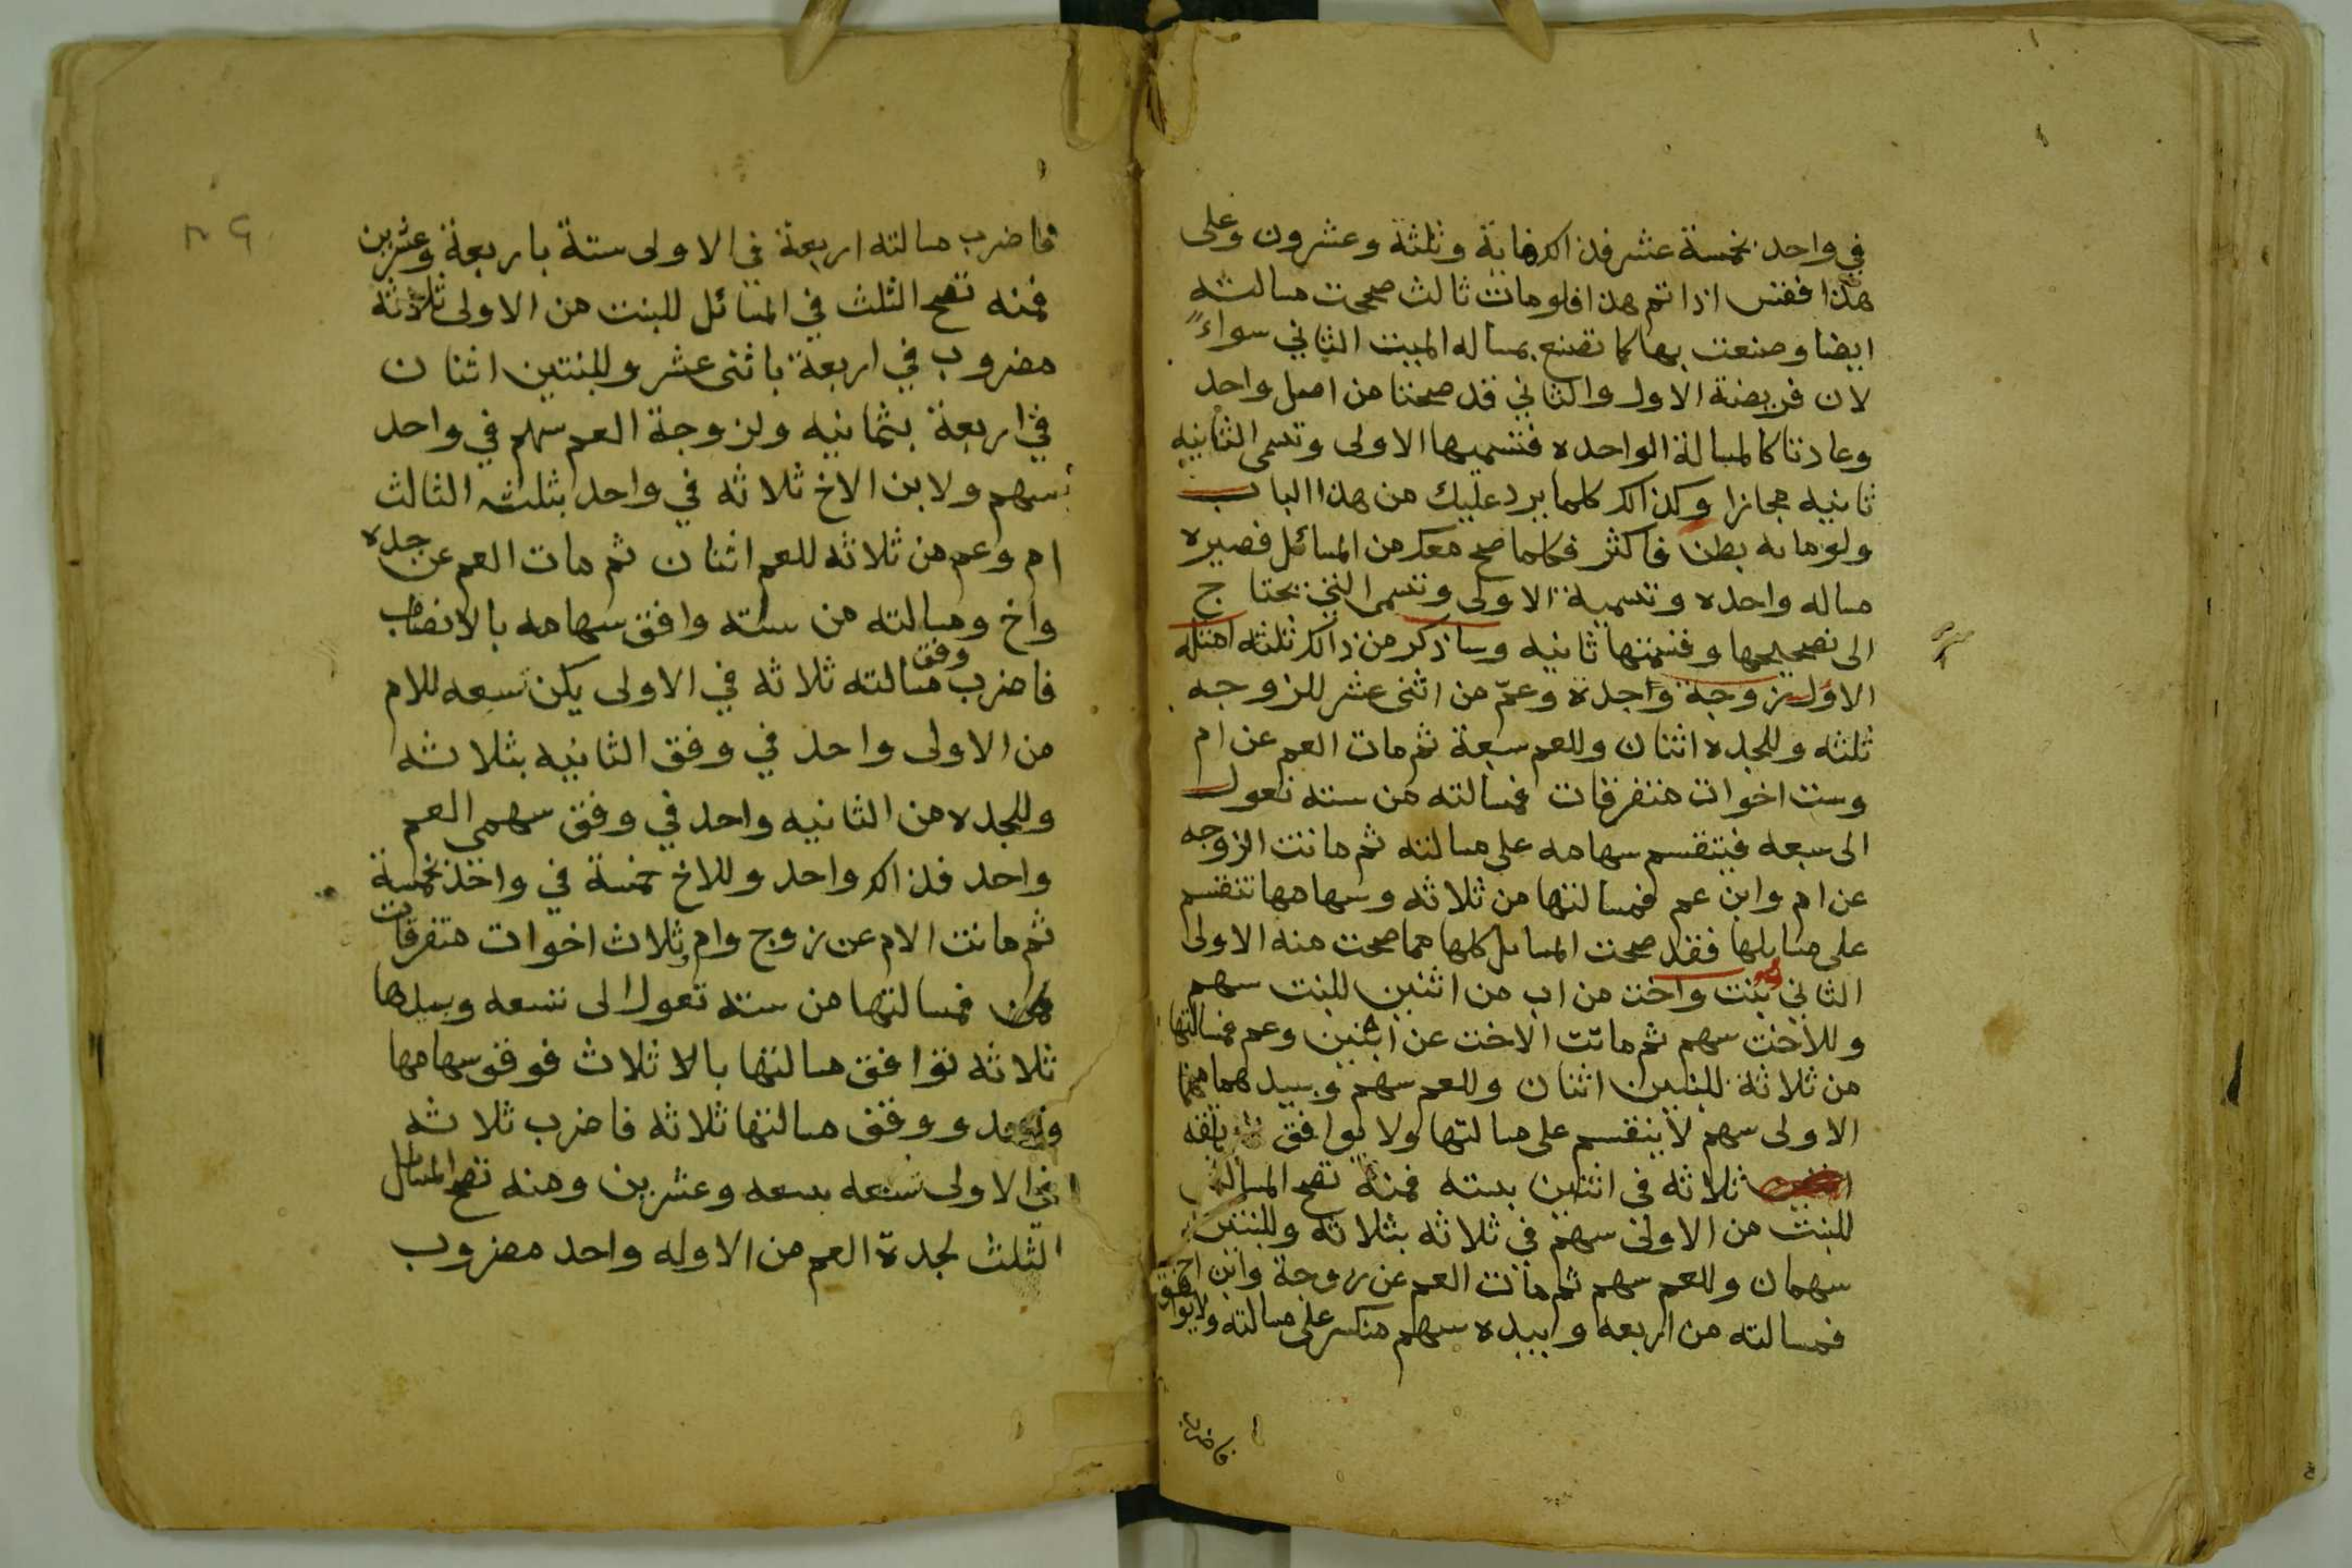 في واحد بخمسة عشر فذالك مايه وثلثة وعشرون وعلى
هذا فقس اذا تم هذا فلو مات ثالث صححت مسالته
ايضا وصنعت بها كما تصنع بمساله الميت الثاني سواءً
لان فريضة الاول والثاني قد صحتا من اصل واحد
وعادتا كالمسالة الواحده فتسميها الاولى وتسمى الثانيه
ثانيه مجازا وكذالك كلما يرد عليك من هذا الباب
ولو مايه بطن فاكثر فكلما صح معك من المسائل فصيره
مساله واحده وتسمية الاولى وتسمى التي تحتاج
الى تصحيحها وقسمتها ثانيه وساذكر من ذالك ثلثه امثله
الاول زوجة وجدة وعمّ من اثنى عشر للزوجه
ثلثه وللجده اثنان وللعم سبعة ثم مات العم عن ام
وست اخوات متفرقات فمسالته من سته تعول
الى سبعه فتنقسم سهامه على مسالته ثم ماتت الزوجه
عن ام وابن عم فمسالتها من ثلاثه وسهامها تنقسم
على مسايلها فقد صحت المسايل كلها مما صحت منه الاولى
الثاني بنت واخت من اب من اثنين للبنت سهم
وللاخت سهم ثم ماتت الاخت عن ابنتين وعم فمسالتها
من ثلاثة للبنتين اثنان وللعم سهم وبيدهما من
الاولى سهم لا ينقسم على مسالتها ولا يوافق
ثلاثه في اثنين بسته فمنه تصح المسالتين
للبنت من الاولى سهم في ثلاثه بثلاثه وللبنتين
سهمان وللعم سهم ثم مات العم عن زوجة وابن اخ
فمسالته من اربعه وبيده سهم منكسر على مسالته ولا يوافق
فاضرب
فاضرب مسالته اربعة في الاولى ستة باربعة وعشرين
فمنه تصح الثلث في المسائل للبنت من الاولى ثلاثة
مضروب في اربعة باثنى عشر وللبنتين اثنان
في اربعة بثمانيه ولزوجة العم سهم في واحد
بسهم ولابن الاخ ثلاثه في واحد بثلثه الثالث
ام وعم من ثلاثه للعم اثنان ثم مات العم عن جده
واخ ومسالته من سته وافق سهامه بالانصاف
فاضرب وفق مسالته ثلاثه في الاولى يكن تسعه للام
من الاولى واحد في وفق الثانيه بثلاثه
وللجده من الثانيه واحد في وفق سهمى العم
واحد فذالك واحد وللاخ خمسة في واحد بخمسة
ثم ماتت الام عن زوج وام وثلاث اخوات متفرقات
فمسالتها من سته تعول الى تسعه وبيدها
ثلاثه توافق مسالتها بالاثلاث فوفق سهامها
واحد ووفق مسالتها ثلاثه فاضرب ثلاثه
في الاولى تسعه بسبعه وعشرين ومنه تصح المسايل
الثلث لجدة العم من الاوله واحد مضروب